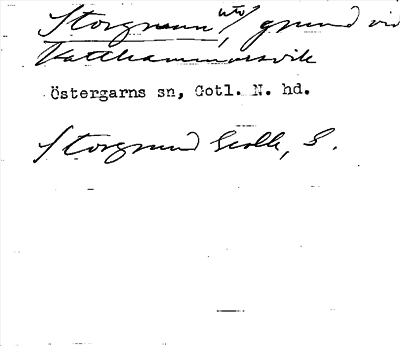 Storgrunn uto/, grund vid
Katthammarsvik
Östergarns sn, Gotl. N. hd.
Storgrund GeolK, S.